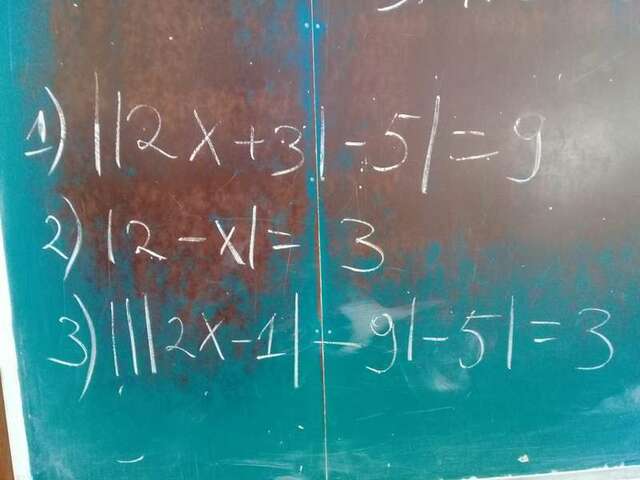 1) ||2x+3|-5|=9
2) |2-x|= 3
3) |||2x-1|-9|-5|=3